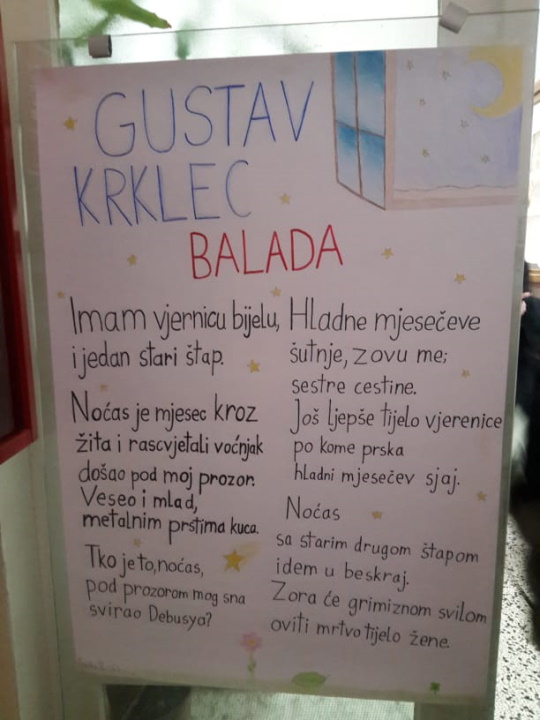 GUSTAV
KRKLEC
BALADA
Imam vjernicu bijelu,
i jedan stari štap.
Noćas je mjesec kroz
žita i rascvjetali voćnjak
došao pod moj prozor.
Veseo i mlad,
metalnim prstima kuca.
Tko je to, noćas,
pod prozorom mog sna
svirao Debusya?
Hladne mjesečeve
šutnje, zovu me;
sestre cestine.
Još ljepše tijelo vjerenice
po kome prska
hladni mjesečev sjaj.
Noćas
sa starim drugom štapom
idem u beskraj.
Zora će grimiznom svilom
oviti mrtvo tijelo žene.